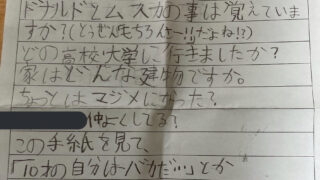 ドナルドとムスカの事は覚えていま
すか？(どうせんもちろんさー!!だよね!?)
どの高校大学に行きましたか？
家はどんな建物ですか。
ちょっとはマジメになった？
仲よくしてる？
この手紙を見て、
「10才の自分はバカだ…」とか